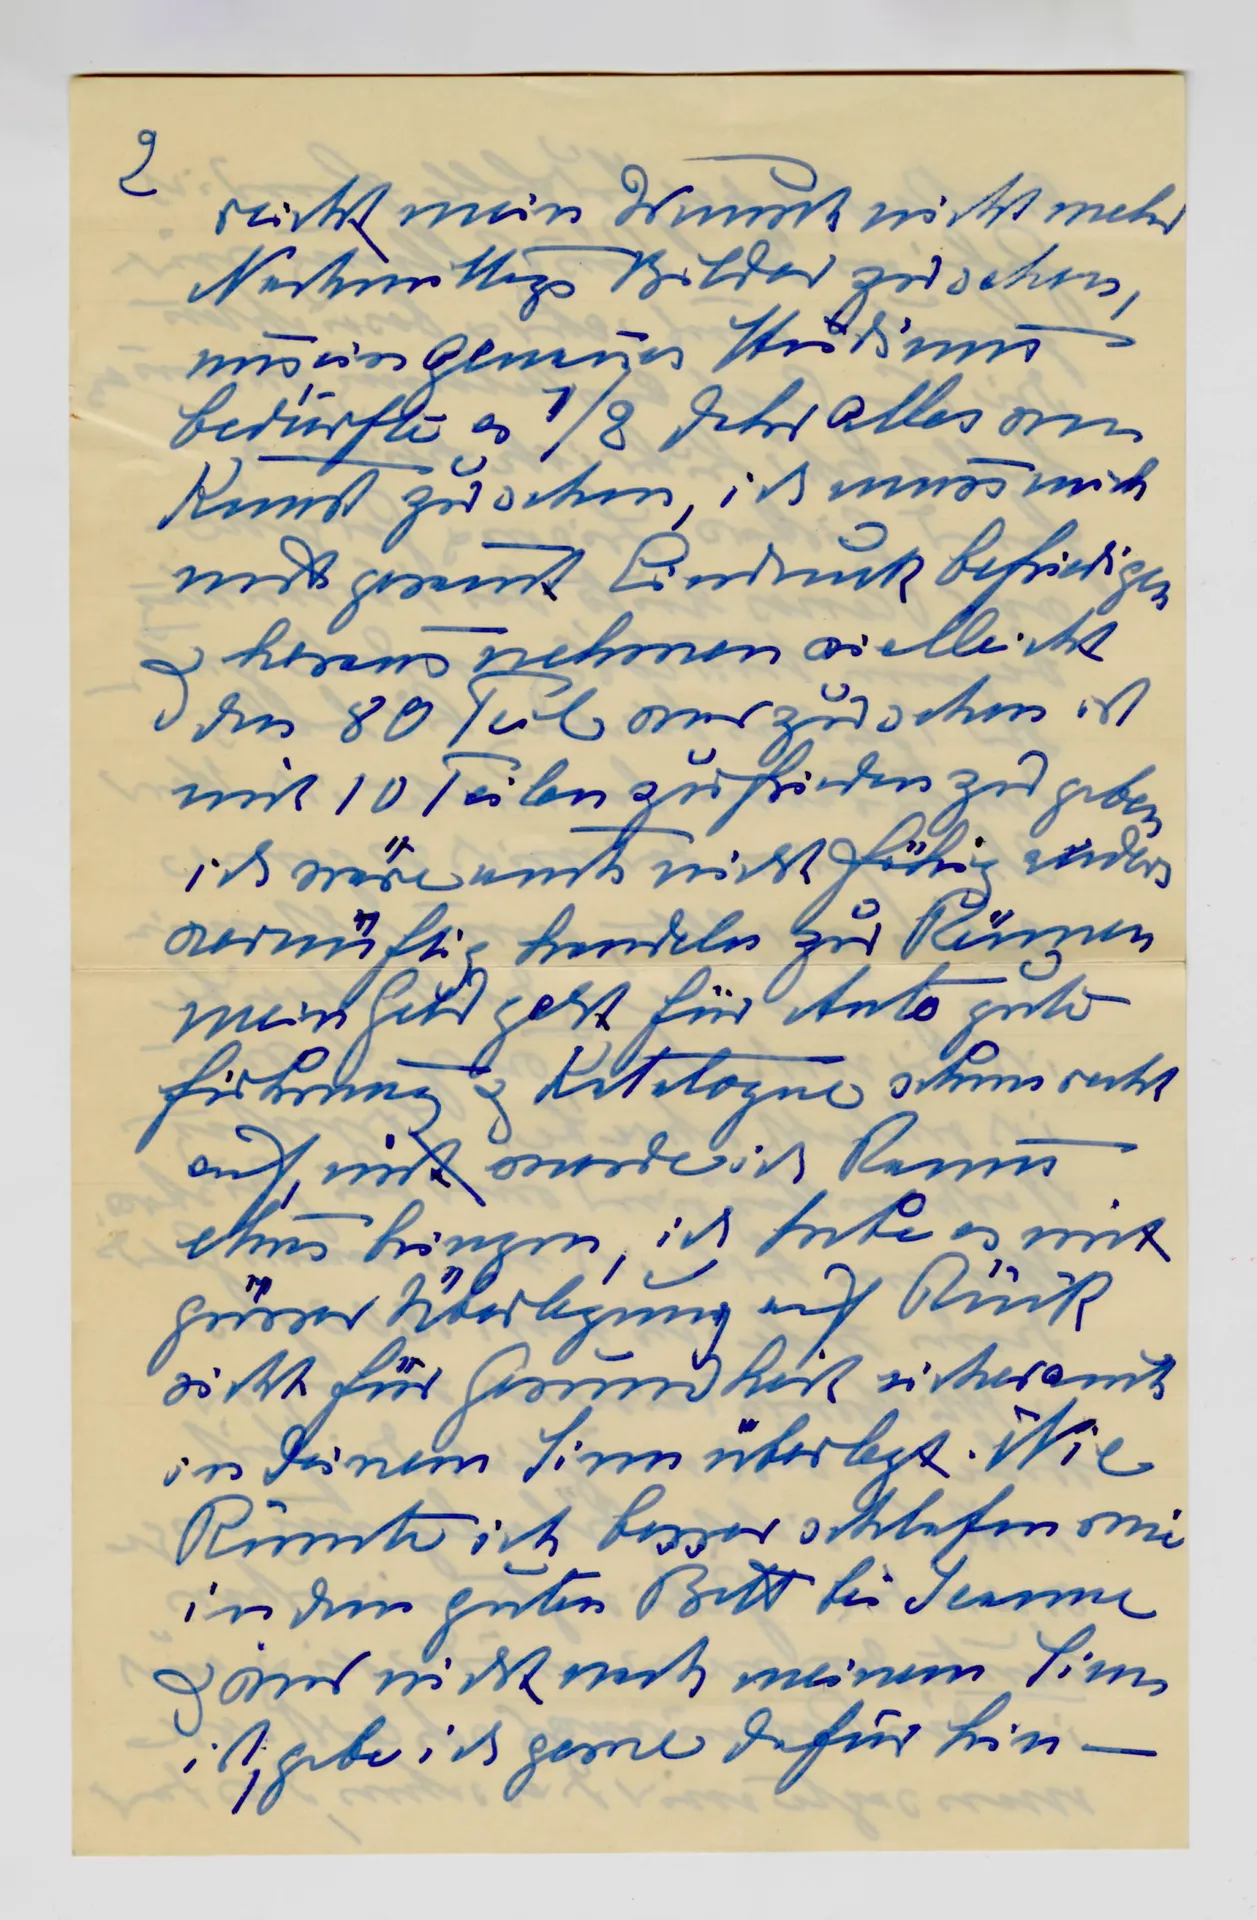 2
reicht mein Wunsch nicht mehr
Nachmittags Bilder zu sehen,
genaues Studium
bedürfte es 1/2 Jahr alles an
Kunst zu sehen, ich muss mich
mit gesamt Eindruck befriedigen
& heraus nehmen vielleicht
den 80 Teil was zu sehen ist
mit 10 Teilen zufrieden zu geben
ich wäre auch nicht fähig anders
vernüftig handeln zu können
mein Geld geht für Auto gute
Führung & Kataloge schon recht
auf, nicht werde ich Kaum
etwas bringen, ich habe es mit
grösser Überlegung auf Rück
sicht für Gesundheit sicher auch
in Deinem Sinn überlegt. Wie
Könnte ich besser schlafen wie
in dem guten Bett bei Jeanne
& was nicht nach meinem Sinn
ist, gebe ich gerne dafür hin —